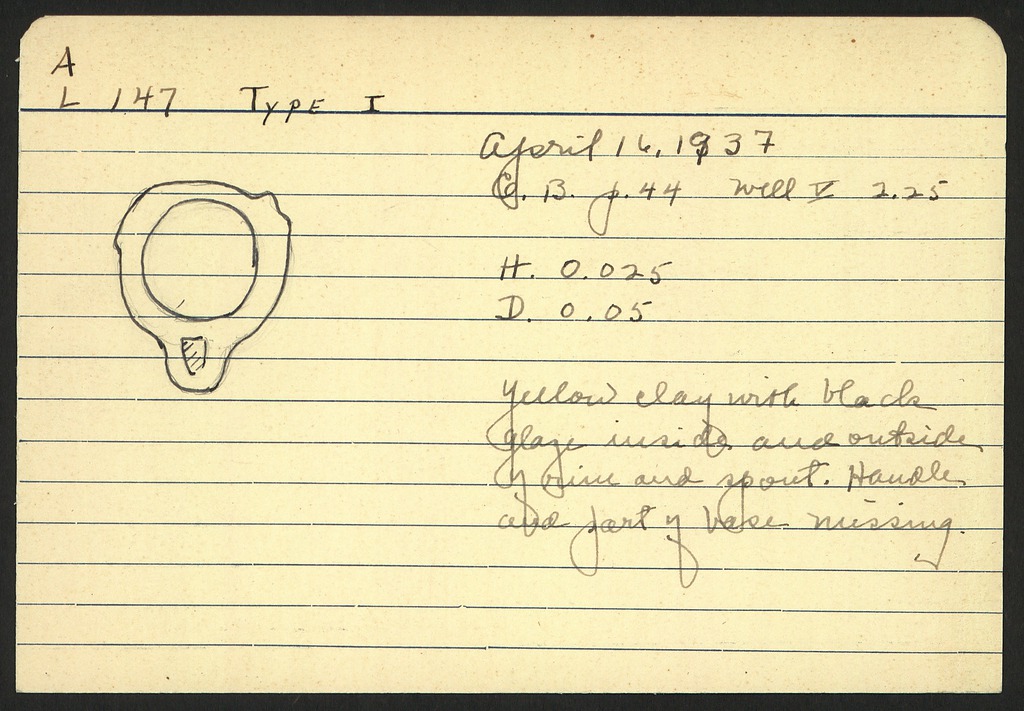 A
L 147 Type I
April 16, 1937
G. B. p. 44 Well V 2.25
H. 0.025
D. 0.05
Yellow clay with black
glaze inside and outside
of rim and spout. Handle
and part of base missing.